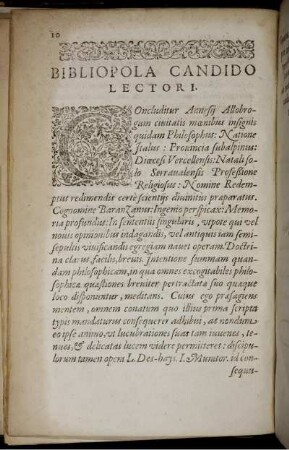 10
BIBLIOPOLA CANDIDO
LECTORI.
COncluditur Annesij Allobro-
gum ciuitatis mœnibus insignis
quidam Philosophus: Natione
Italus: Prouincia subalpinus:
Diœcesi Vercellensis: Natali so-
lo Serranalensis Professione
Religiosus: Nomine Redem-
ptus redimendis certè scientijs diuinitùs præparatus.
Cognomine Baranzanus: Ingenio perspicax: Memo-
ria profundus: In sententijs singularis, vtpote qui vel
nouis opinionibus indagandis, vel antiquis iam semi-
sepultis viuificandis egregiam nauet operam. Doctri-
na clarus, facilis, breuis. Intentione summam quan-
dam philosophicam, in qua omnes excogitabiles philo-
sophicæ quæstiones breuiter pertractatæ suo quæque
loco disponuntur, meditans. Cuius ego præsagiens
mentem, omnem conatum quo illius prima scripta
typis mandaturus consequerer adhibui, at nondum
eo ipso animo, vt lucubrationes suas tam iuuenes, te-
neas, & delicatas lucem videre permitteret: discipu-
lorum tamen opera L. Des-hays. I. Munitor. id con-
sequu-